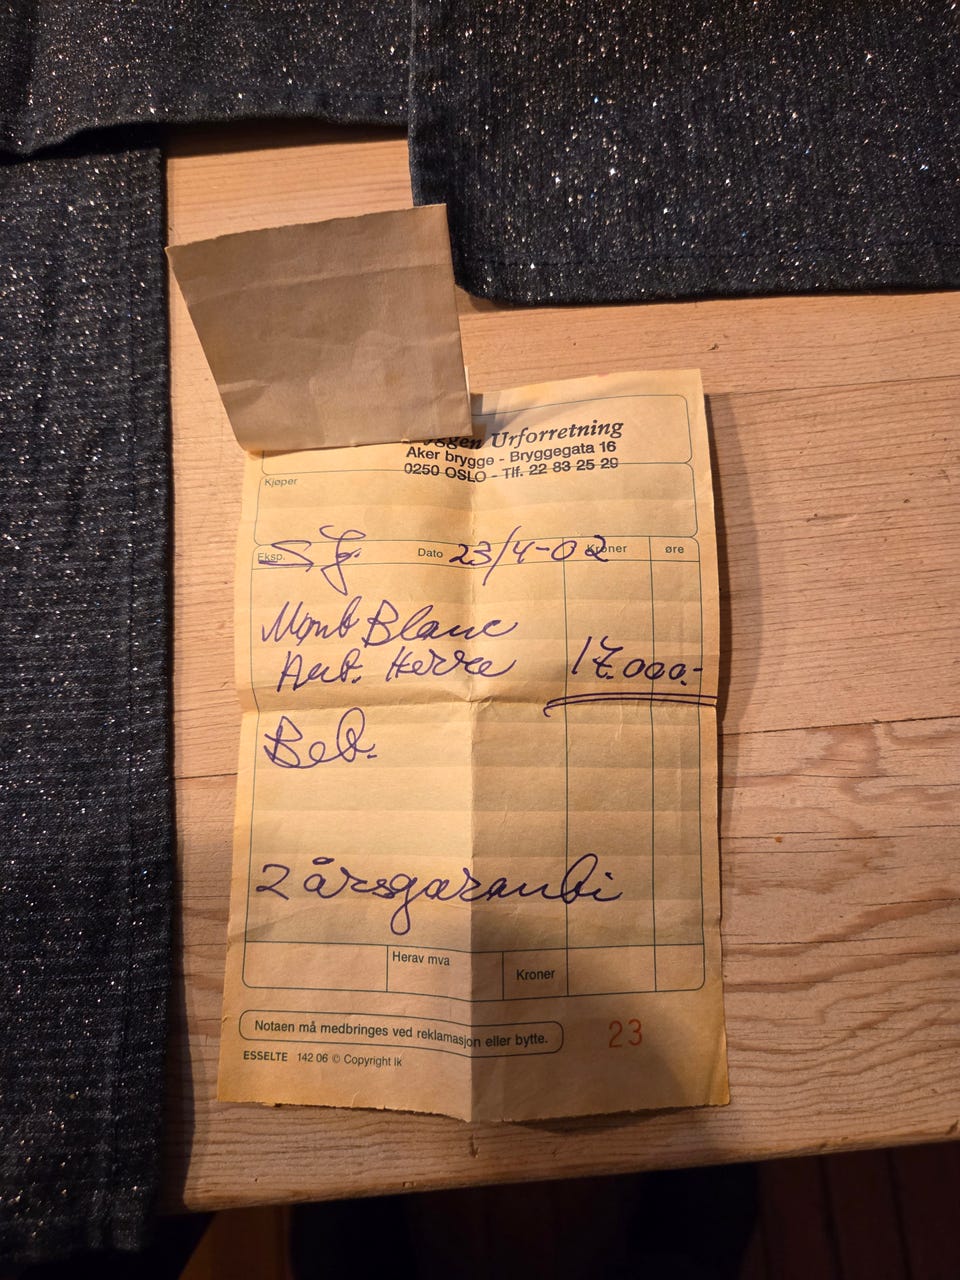 Urforretning
Aker brygge - Bryggegata 16
0250 OSLO - Tlf. 22 83 25 29
Kjøper
Eksp.
Dato 23/4-02 Kroner øre
Mont Blanc
Aut. Herre 17.000.-
Bet.
2 årsgaranti
Herav mva
Kroner
Notaen må medbringes ved reklamasjon eller bytte.
23
ESSELTE 142 06 © Copyright Ik